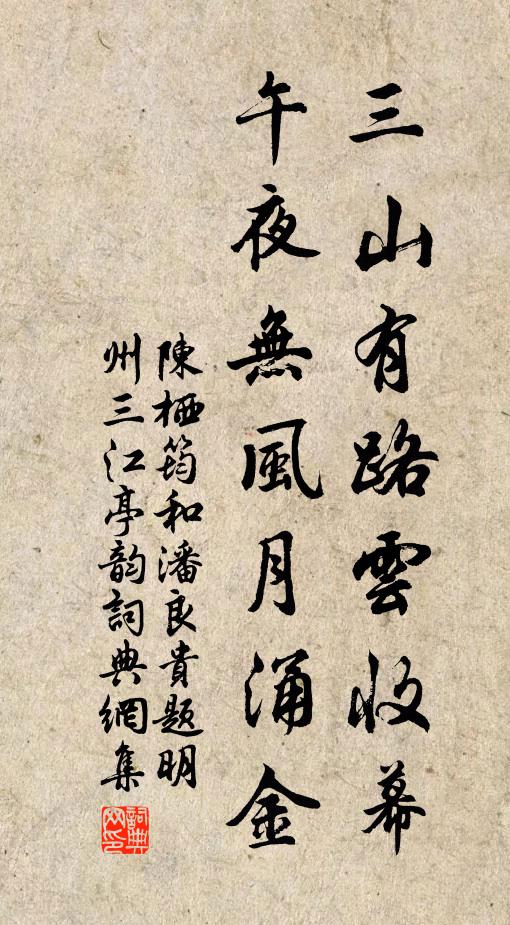 三山有路雲收幕
午夜無風月涌金
陳栖筠和潘良貴題明
州三江亭韵詞典網集
詞典网印